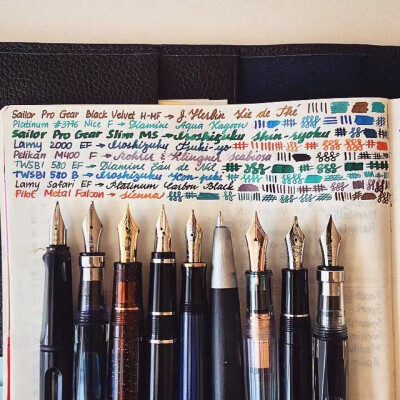 Sailor Pro Gear Black Velvet H-MF → J. Herbin Lie de Thé
Platinum #3776 Nice F → Diamine Aqua Lagoon
Sailor Pro Gear Slim MS → Iroshizuku Shin-ryoku
Lamy 2000 EF → Iroshizuku Tsuki-yo
Pelikan M400 F → Rohrer & Klingner Scabiosa
TWSBI 580 EF → Diamine Eau de Nil
TWSBI 580 B → Iroshizuku
Lamy Safari EF → Platinum Carbon Black
Pilot Metal Falcon → Sienna